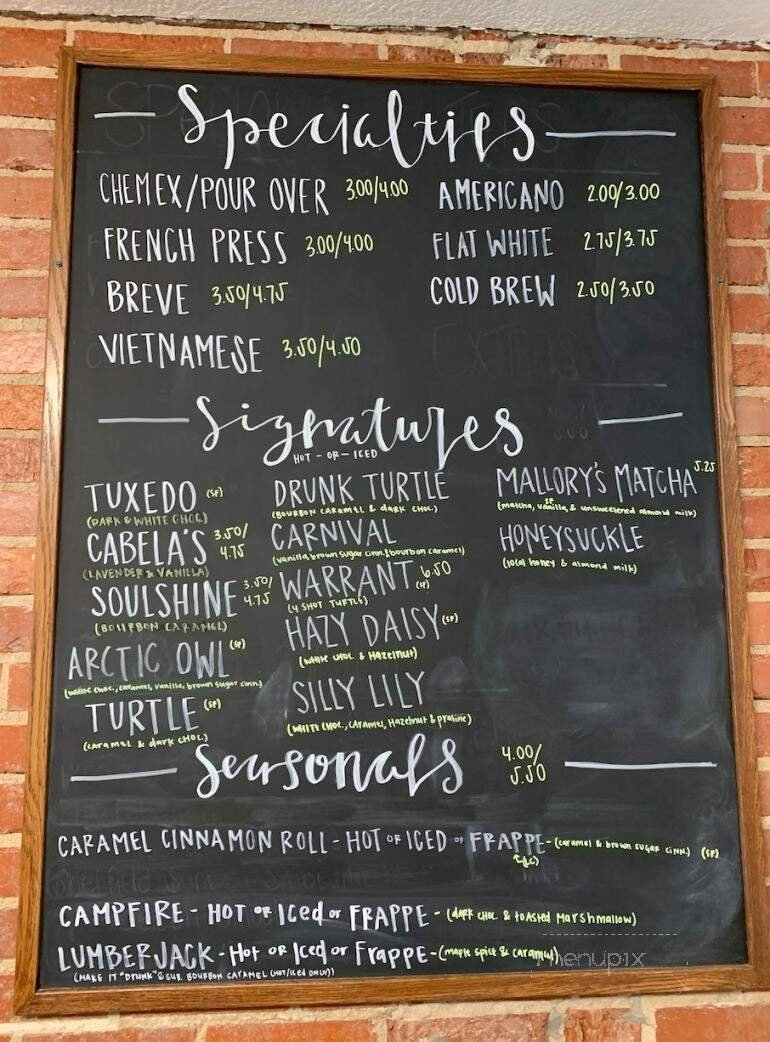 Specialties
CHEMEX/POUR OVER 3.00/4.00 AMERICANO 2.00/3.00
FRENCH PRESS 3.00/4.00 FLAT WHITE 2.75/3.75
BREVE 3.50/4.75 COLD BREW 2.50/3.50
VIETNAMESE 3.50/4.50
Signatures
HOT - OR - ICED
TUXEDO (SF)
(DARK & WHITE CHOC.)
CABELA'S 3.50/4.75
(LAVENDER & VANILLA)
SOULSHINE 3.50/4.75
(BOURBON CARAMEL)
ARCTIC OWL (SF)
(white choc., caramel, vanilla, brown sugar cinn.)
TURTLE (SF)
(caramel & dark choc.)
DRUNK TURTLE
(BOURBON CARAMEL & dark CHOC.)
CARNIVAL
(vanilla, brown sugar cinn. & bourbon caramel)
WARRANT (SF) 6.50
(4 SHOT TURTLE)
HAZY DAISY (SF)
(White CHOC. & Hazelnut)
SILLY LILY
(WHITE CHOC., CARAMEL, Hazelnut & praline)
MALLORY'S MATCHA 5.25
(matcha, vanilla, & unsweetened almond milk)
SF
HONEYSUCKLE
(local honey & almond milk)
Seasonals 4.00/5.50
CARAMEL CINNAMON ROLL - HOT OR ICED OR FRAPPE - (caramel & brown sugar cinn.) (SF)
CAMPFIRE - HOT OR ICed or FRAPPE - (dark choc. & toasted Marshmallow)
LUMBERJACK - Hot OR Iced or Frappe - (maple spice & caramel)
(MAKE IT "DRUNK" & SUB BOURBON CARAMEL (HOT/ICED ONLY))
menupix